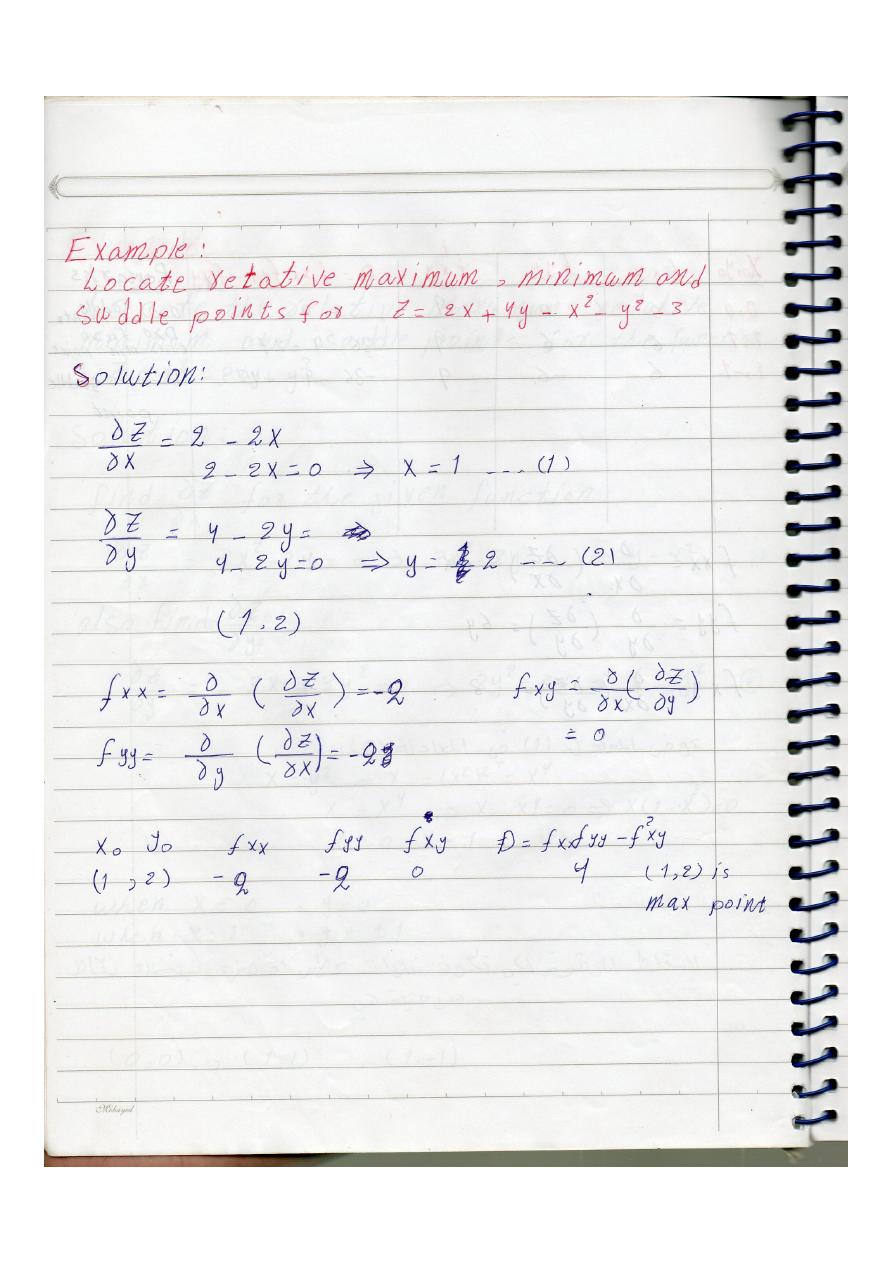 Example:
Locate retative maximum, minimum and
Suddle points for Z = 2x + 4y - x² - y² - 3
Solution:
∂Z/∂x = 2 - 2x
2 - 2x = 0 ⇒ x = 1 --- (1)
∂Z/∂y = 4 - 2y =
4 - 2y = 0 ⇒ y = 2 --- (2)
(1, 2)
fxx = ∂/∂x (∂Z/∂x) = -2 fxy = ∂/∂x (∂Z/∂y)
= 0
fyy = ∂/∂y (∂Z/∂x) = -2
x₀ y₀ fxx fyy fxy D = fxxfyy - f²xy
(1, 2) -2 -2 0 4 (1,2) is
max point
Mohayed